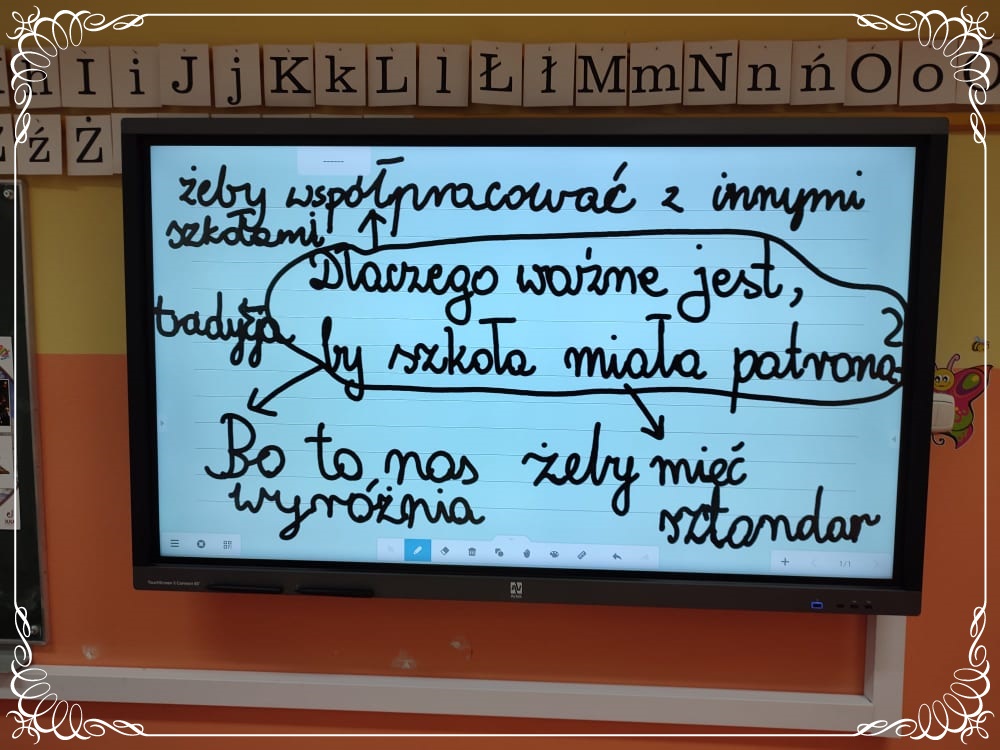 h I i J j K k L l Ł ł M m N n ń O o Ó
ź Ż
żeby współpracować z innymi
szkołami
Dlaczego ważne jest,
tradycja
by szkoła miała patrona?
Bo to nas
wyróżnia
żeby mięć
sztandar
1/1